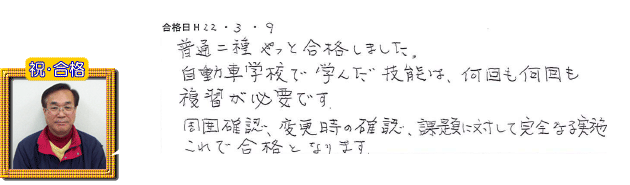 合格日H22・3・9
普通二種やっと合格しました。
自動車学校で学んだ技能は、何回も何回も
複習が必要です。
周囲確認、変更時の確認、課題に対して完全なる実施
これで合格となります。
祝・合格